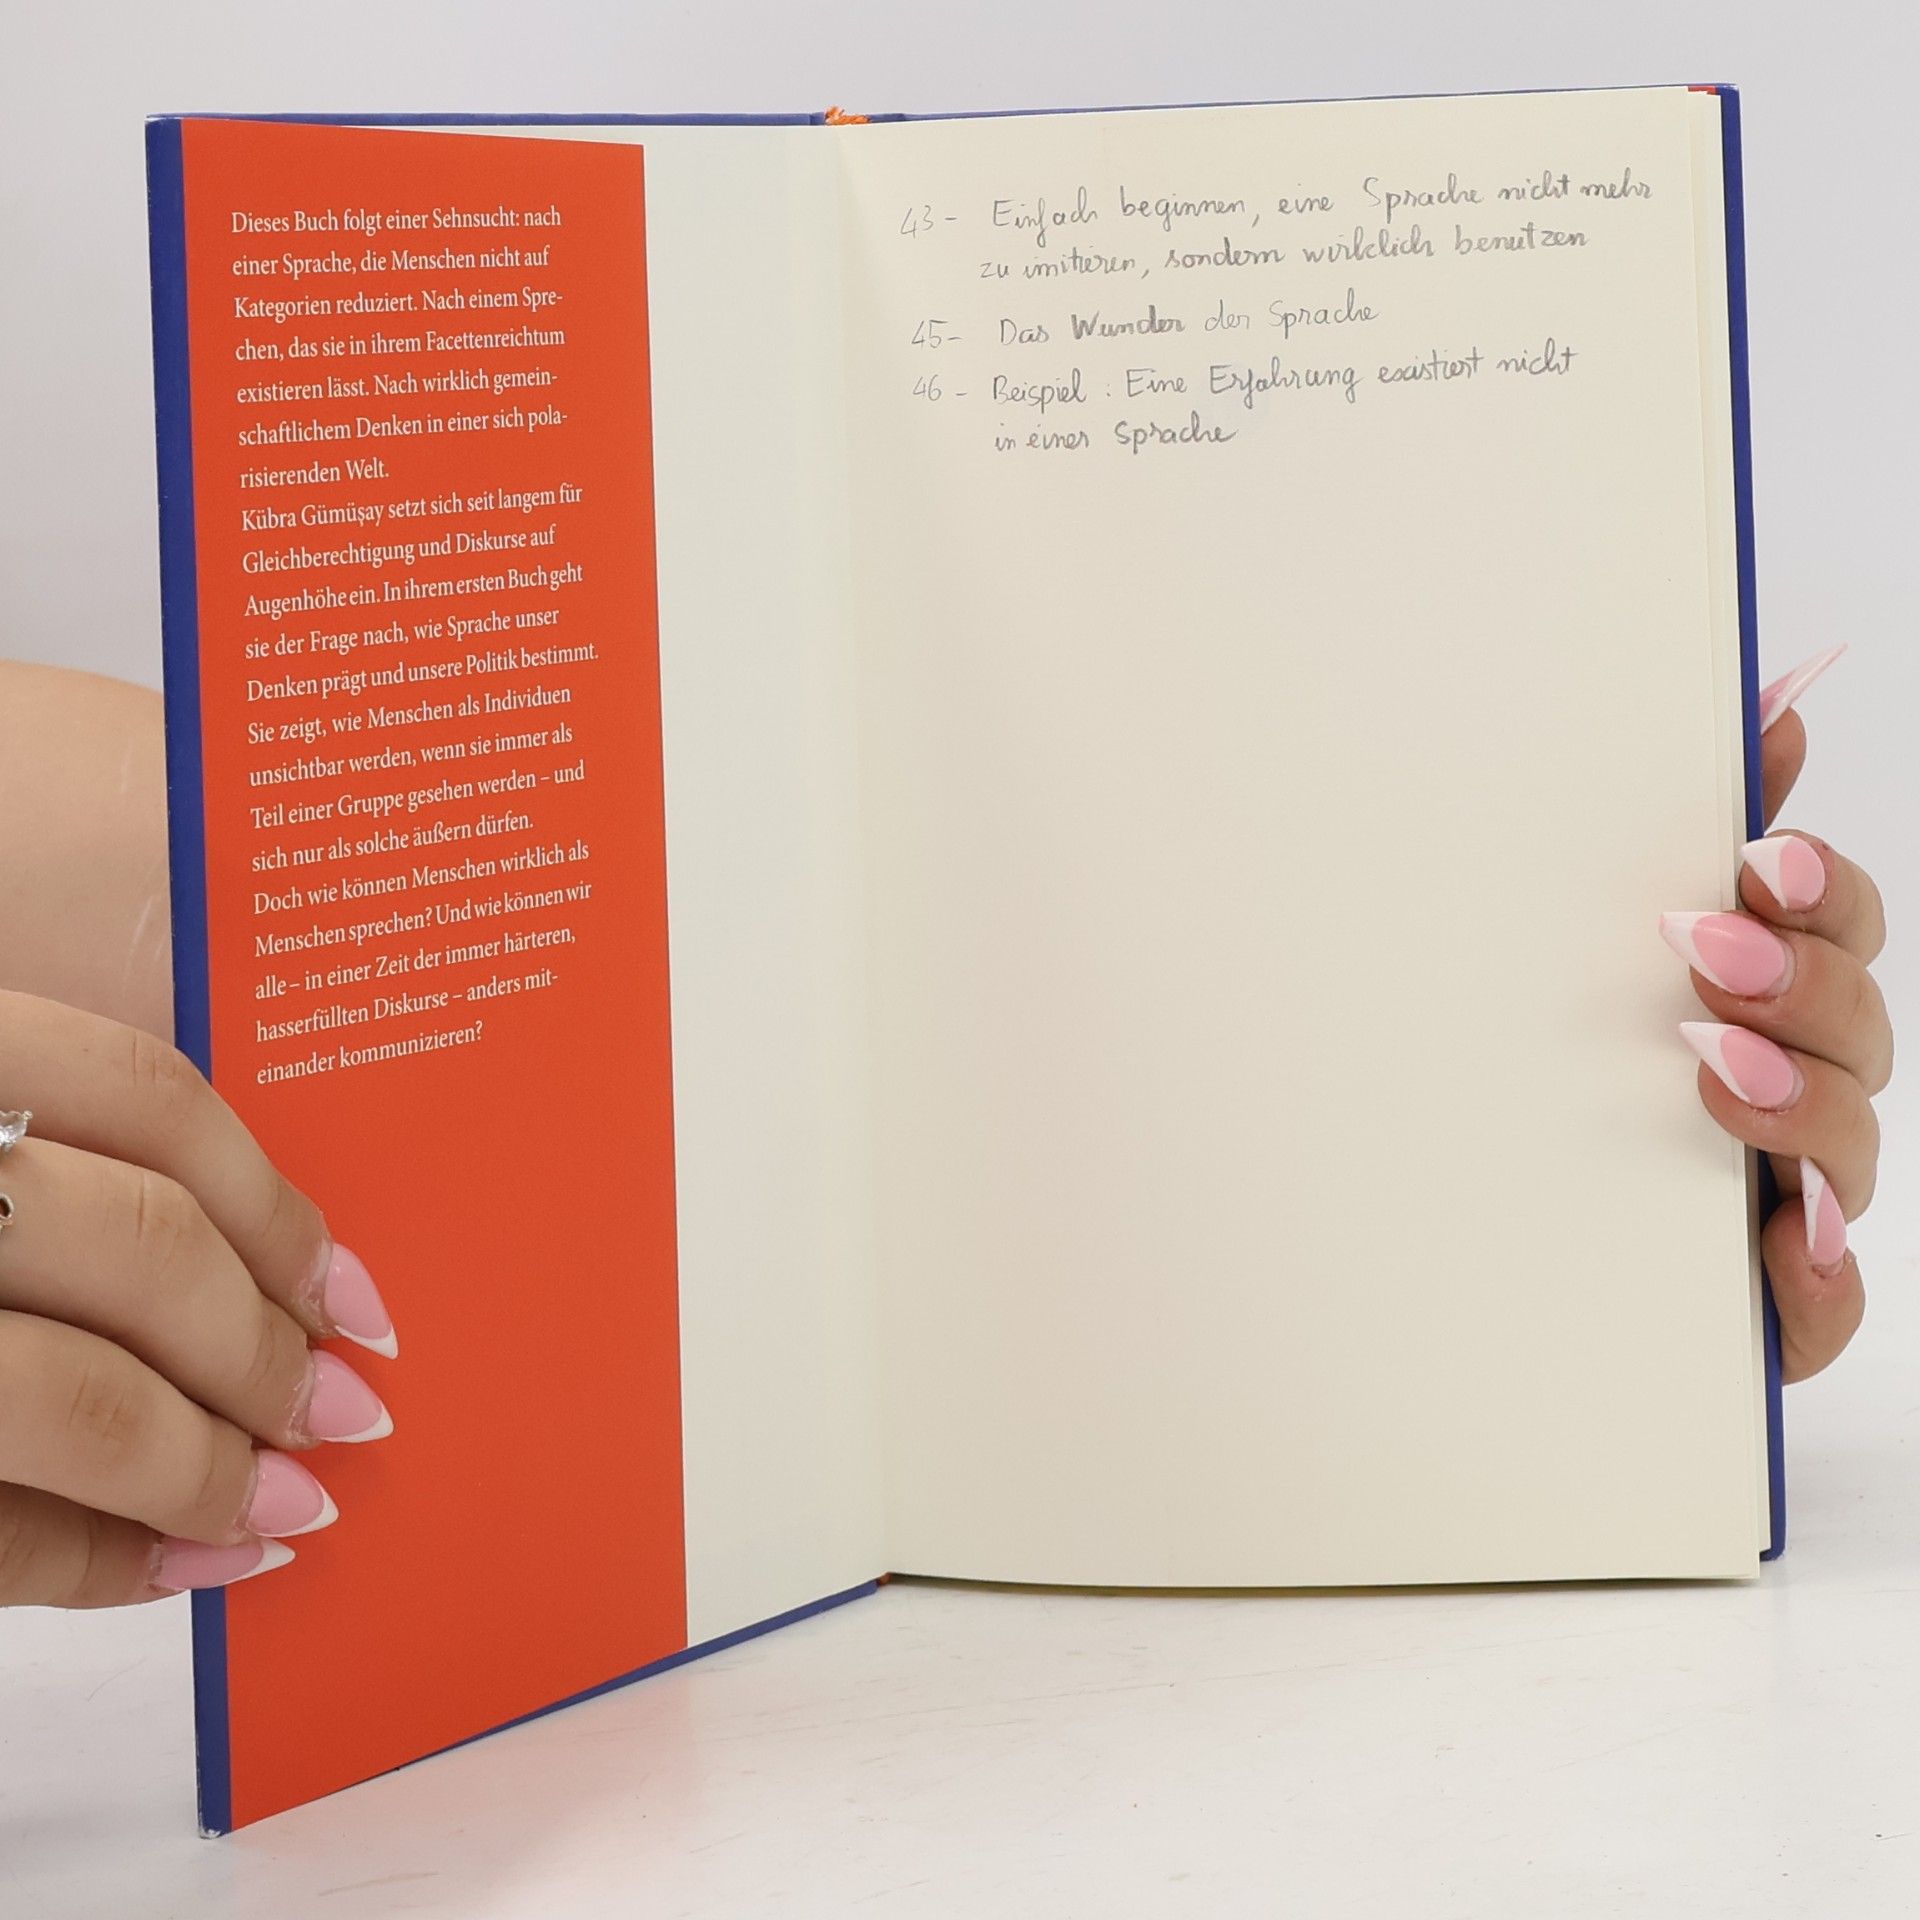 Dieses Buch folgt einer Sehnsucht: nach
einer Sprache, die Menschen nicht auf
Kategorien reduziert. Nach einem Spre-
chen, das sie in ihrem Facettenreichtum
existieren lässt. Nach wirklich gemein-
schaftlichem Denken in einer sich pola-
risierenden Welt.
Kübra Gümüşay setzt sich seit langem für
Gleichberechtigung und Diskurse auf
Augenhöhe ein. In ihrem ersten Buch geht
sie der Frage nach, wie Sprache unser
Denken prägt und unsere Politik bestimmt.
Sie zeigt, wie Menschen als Individuen
unsichtbar werden, wenn sie immer als
Teil einer Gruppe gesehen werden – und
sich nur als solche äußern dürfen.
Doch wie können Menschen wirklich als
Menschen sprechen? Und wie können wir
alle – in einer Zeit der immer härteren,
hasserfüllten Diskurse – anders mit-
einander kommunizieren?
43 - Einfach beginnen, eine Sprache nicht mehr
zu imitieren, sondern wirklich benutzen
45 - Das Wunder der Sprache
46 - Beispiel : Eine Erfahrung existiert nicht
in einer Sprache